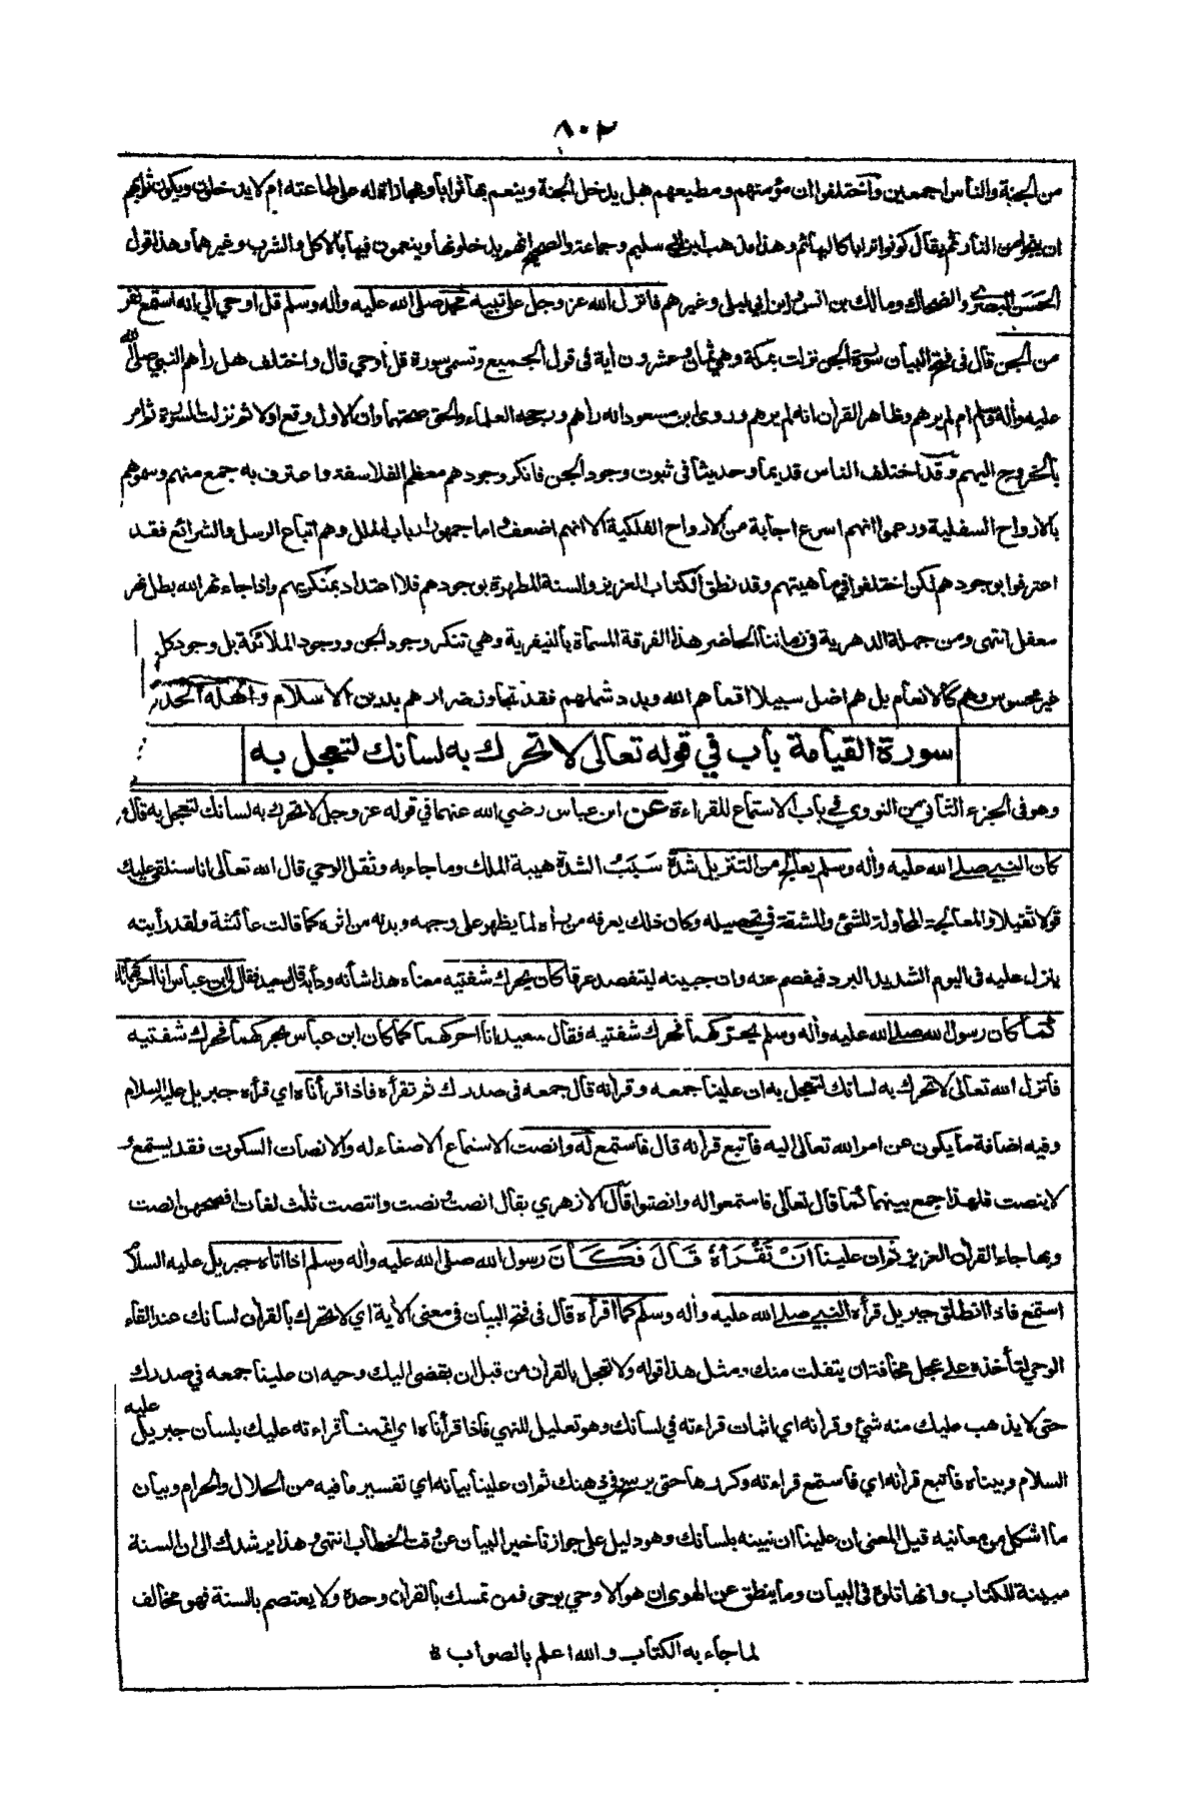 ٨٠٢
من الجنة والناس اجمعين واختلفوا ان مؤمنهم ومطيعهم هل يدخل الجنة وينعم بها ثوابا ومجازاة له على طاعته ام لا يدخلون ويكون ثوابهم
ان ينجوا من النار ثم يقال كونوا ترابا كالبهائم وهذا مذهب ابن ابي سليم وجماعة والصحيح انهم يدخلونها وينعمون فيها بالاكل والشرب وغيرهما وهذا قول
الحسن البصري والضحاك ومالك بن انس وابن ابي ليلى وغيرهم فانزل الله عز وجل على نبيه محمد صلى الله عليه واله وسلم قل اوحي الي انه استمع نفر
من الجن قال في فتح البيان سورة الجن نزلت بمكة وهي ثمان وعشرون اية في قول الجميع وتسمى سورة قل اوحي قال واختلف هل راهم النبي صلى الله
عليه واله وسلم ام لم يرهم وظاهر القران انه لم يرهم وروى ابن مسعود انه راهم ورجحه العلماء والحق صحتهما وان الاول وقع اولا ثم نزلت السورة ثم امر
بالخروج اليهم وقد اختلف الناس قديما وحديثا في ثبوت وجود الجن فانكر وجودهم معظم الفلاسفة واعترف به جمع منهم وسموهم
بالارواح السفلية وزعموا انهم اسرع اجابة من الارواح الفلكية الا انهم اضعف واما جمهور ارباب الملل وهم اتباع الرسل والشرائع فقد
اعترفوا بوجودهم لكن اختلفوا في ماهيتهم وقد نطق الكتاب العزيز والسنة المطهرة بوجودهم فلا اعتداد بمنكريهم واذا جاء نهر الله بطل نهر
معقل انتهى ومن جملة الدهرية في زماننا الحاضر هذا الفرقة المسماة بالنيفرية وهي تنكر وجود الجن ووجود الملائكة بل وجود كل
غير محسوس وهم كالانعام بل هم اضل سبيلا اقماهم الله وبدد شملهم فقد تجاوز ضرارهم بدين الاسلام واهله الحذر
سورة القيامة باب في قوله تعالى لا تحرك به لسانك لتعجل به
وهو في الجزء الثاني من النووي في باب الاستماع للقراءة عن ابن عباس رضي الله عنهما في قوله عز وجل لا تحرك به لسانك لتعجل به قال
كان النبي صلى الله عليه واله وسلم يعالج من التنزيل شدة سبب الشدة هيبة الملك وما جاء به وثقل الوحي قال الله تعالى انا سنلقي عليك
قولا ثقيلا والمعالجة المحاولة للشئ والمشقة في تحصيله وكان ذلك يعرفه من راه لما يظهر على وجهه وبدنه من اثره كما قالت عائشة ولقد رأيته
ينزل عليه في اليوم الشديد البرد فيفصم عنه وان جبينه ليتفصد عرقا كان يحرك شفتيه معناه هذا شأنه ودأبه قال سعيد فقال لي ابن عباس انا احركهما لك
كما كان رسول الله صلى الله عليه واله وسلم يحركهما فحرك شفتيه فقال سعيد انا احركهما كما كان ابن عباس يحركهما فحرك شفتيه
فانزل الله تعالى لا تحرك به لسانك لتعجل به ان علينا جمعه وقرانه قال جمعه في صدرك ثم تقرأه فاذا قرأناه اي قرأه جبريل عليه السلام
وفيه اضافة ما يكون عن امر الله تعالى اليه فاتبع قرانه قال فاستمع له وانصت الاستماع الاصغاء له والانصات السكوت فقد يستمع و
لا ينصت فلهذا جمع بينهما كما قال تعالى فاستمعوا له وانصتوا قال الازهري يقال انصت ونصت وانتصت ثلث لغات افصحهن انصت
وبها جاء القران العزيز ثم ان علينا ان تقرأه قال فكان رسول الله صلى الله عليه واله وسلم اذا اتاه جبريل عليه السلام
استمع فاذا انطلق جبريل قرأه النبي صلى الله عليه واله وسلم كما اقرأه قال في فتح البيان في معنى الاية اي لا تحرك بالقران لسانك عند القاء
الوحي لتأخذه على عجل مخافة ان يتفلت منك ومثل هذا قوله ولا تعجل بالقران من قبل ان يقضى اليك وحيه ان علينا جمعه في صدرك
حتى لا يذهب عليك منه شئ وقرانه اي اثبات قراءته في لسانك وهو تعليل للنهي فاذا قرأناه اي اتممنا قراءته عليك بلسان جبريل عليه
السلام وبيناه فاتبع قرانه اي فاستمع قراءته وكررها حتى يرسخ في ذهنك ثم ان علينا بيانه اي تفسير ما فيه من الحلال والحرام وبيان
ما اشكل من معانيه قيل المعنى ان علينا ان نبينه بلسانك وهو دليل على جواز تأخير البيان عن وقت الخطاب انتهى وهذا يرشدك الى ان السنة
مبينة للكتاب وانها تلوه في البيان وما ينطق عن الهوى ان هو الا وحي يوحى فمن تمسك بالقران وحده ولا يعتصم بالسنة فهو مخالف
لما جاء به الكتاب والله اعلم بالصواب